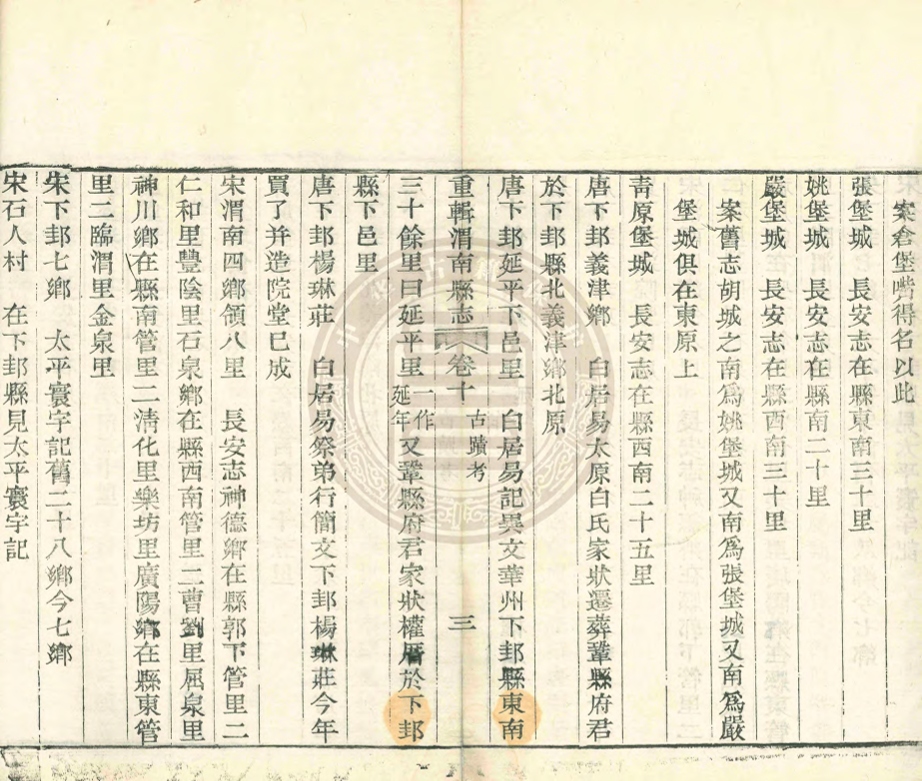 案倉堡嘴得名以此
張堡城　長安志在縣東南三十里
姚堡城　長安志在縣南二十里
嚴堡城　長安志在縣西南三十里
案舊志胡城之南爲姚堡城又南爲張堡城又南爲嚴
堡城俱在東原上
靑原堡城　長安志在縣西南二十五里
唐下邽義津鄉　白居易太原白氏家狀遷葬鞏縣府君
於下邽縣北義津鄉北原
唐下邽延平下邑里　白居易記異文華州下邽縣東南
重輯渭南縣志　卷十　古蹟考　三
三十餘里曰延平里一作延年又鞏縣府君家狀權厝於下邽
縣下邑里
唐下邽楊琳莊　白居易祭弟行簡文下邽楊琳莊今年
買了并造院堂已成
宋渭南四鄉領八里　長安志神德鄉在縣郭下管里二
仁和里豐陰里石泉鄉在縣西南管里二曹劉里屈泉里
神川鄉在縣南管里二淸化里樂坊里廣陽鄉在縣東管
里二臨渭里金泉里
宋下邽七鄉　太平寰宇記舊二十八鄉今七鄉
宋石人村　在下邽縣見太平寰宇記